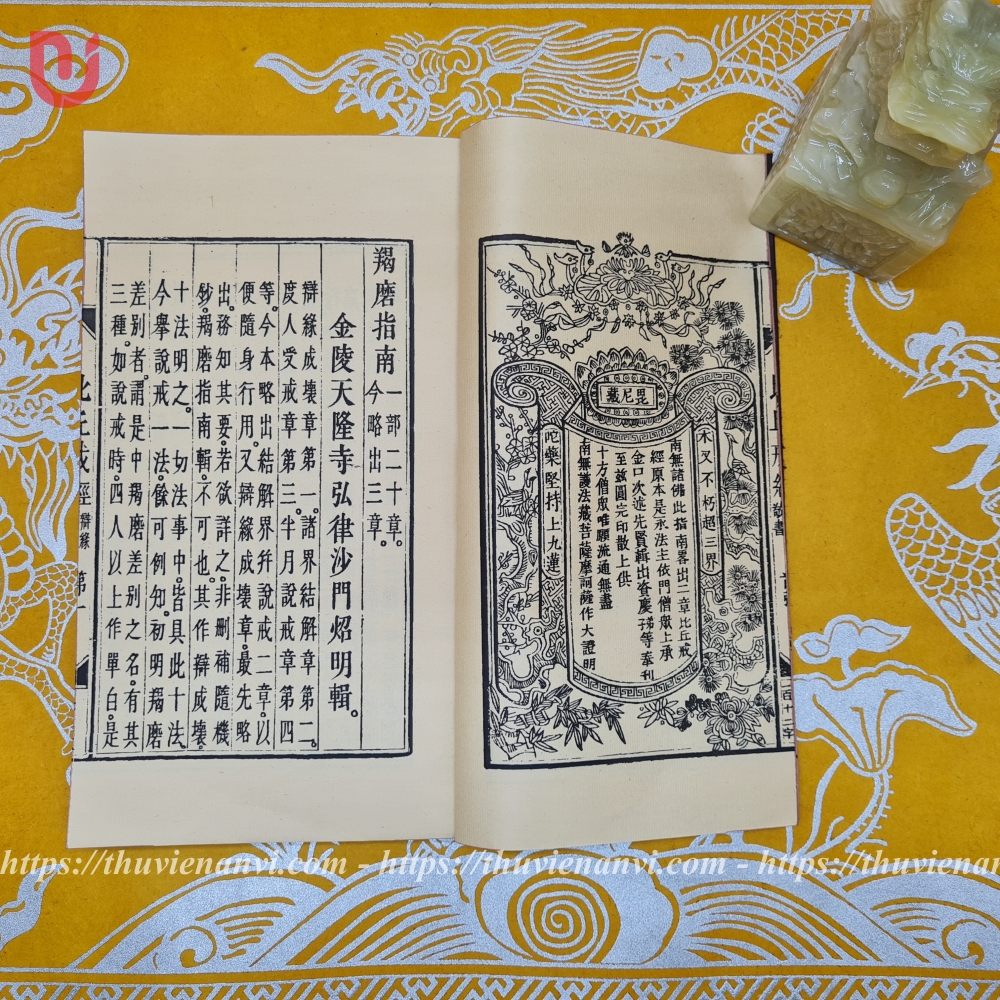 毘尼藏
木叉不朽超三界
南無諸佛此指南畧出二章比丘戒
經原本是承法主依門僧眾上承
金口次述先賢輯出耆慶等奉刊
至兹圓完印散上供
十方僧眾唯願流通無盡
南無護法藏菩薩摩訶薩作大證明
陀藥堅持上九蓮
羯磨指南
一部二十章。
今略出三章。
金陵天隆寺弘律沙門炤明輯。
辯緣成壞章第一。諸界結解章第二。
度人受戒章第三。半月說戒章第四
等。今本略出結解界幷說戒二章。以
便隨身行用。又辯緣成壞章。最先略
出。務知其要。若欲詳之。非刪補隨機
鈔。羯磨指南輯。不可也。其作辯成壞。
十法明之。一切法事中。皆具此十法。
今舉說戒一法。餘可例知。初明羯磨
差別者。謂是中羯磨差別之名。有其
三種。如說戒時。四人以上作單白。是
比丘戒經 辯緣 第一
https://thuvienanvi.com - https://thuvienanvi.com - https://thuvienanvi